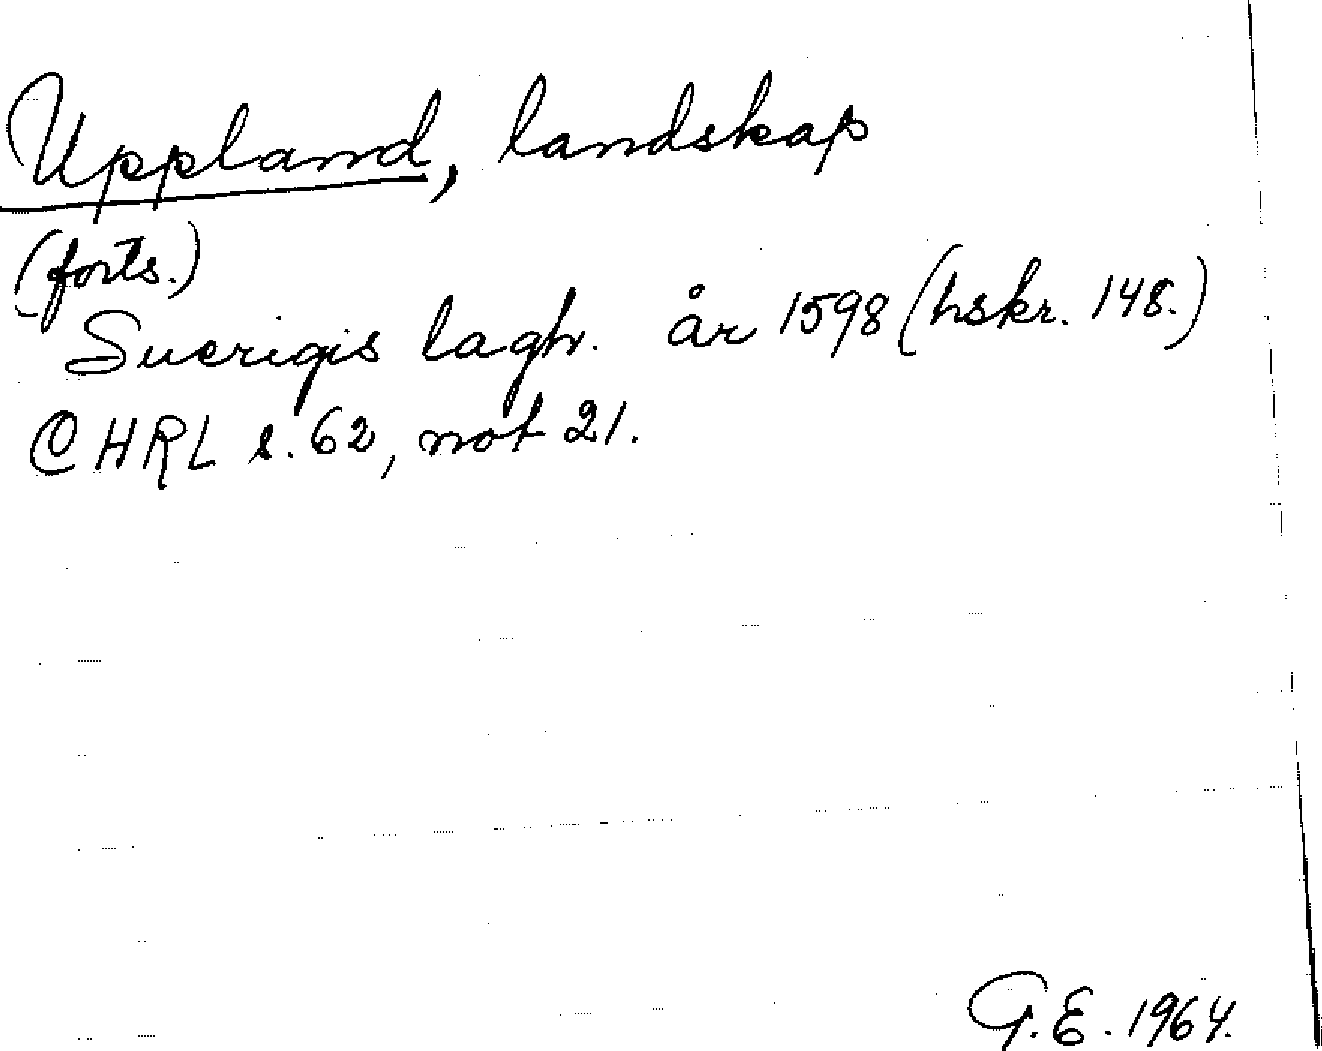 Uppland, landskap
(forts.)
Suerigis lagh. år 1598 (hskr. 148.)
CHRL s. 62, not 21.
G.E. 1964.